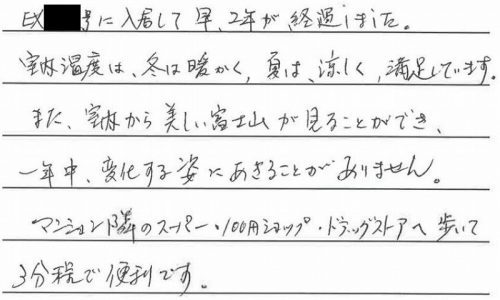 EX 号に入居して早、2年が経過しました。
室内温度は、冬は暖かく、夏は、涼しく、満足しています。
また、室内から美しい富士山が見ることができ、
一年中、変化する姿にあきることがありません。
マンション隣のスーパー・100円ショップ・ドラッグストアへ歩いて
3分程で便利です。